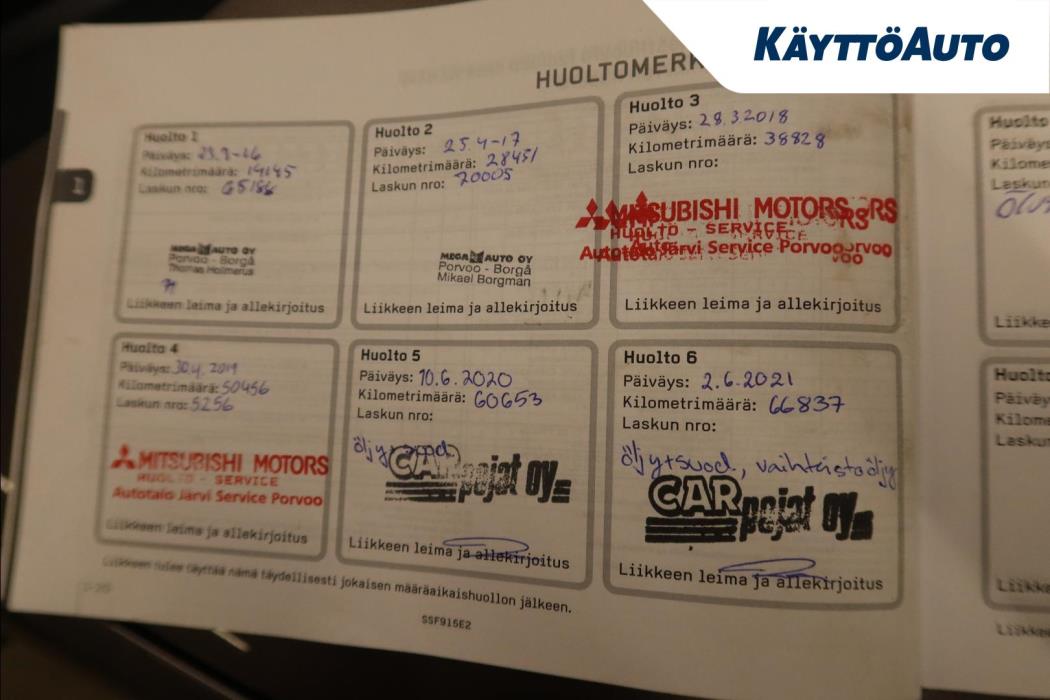 KÄYTTÖAUTO
HUOLTOMERK
Huolto 1
Päiväys: 23.9-16
Kilometrimäärä: 14145
Laskun nro: 65186
MEGA AUTO OY
Porvoo - Borgå
Thomas Holmerus
Liikkeen leima ja allekirjoitus
Huolto 2
Päiväys: 25.4-17
Kilometrimäärä: 28451
Laskun nro: 70005
MEGA AUTO OY
Porvoo - Borgå
Mikael Borgman
Liikkeen leima ja allekirjoitus
Huolto 3
Päiväys: 28.3.2018
Kilometrimäärä: 38828
Laskun nro:
MITSUBISHI MOTORS
HUOLTO - SERVICE
Autotalo Järvi Service Porvoo
Liikkeen leima ja allekirjoitus
Huolto 4
Päiväys: 30.4.2019
Kilometrimäärä: 50456
Laskun nro: 5256
MITSUBISHI MOTORS
HUOLTO - SERVICE
Autotalo Järvi Service Porvoo
Liikkeen leima ja allekirjoitus
Huolto 5
Päiväys: 10.6.2020
Kilometrimäärä: 60653
Laskun nro:
öljy+suod.
CARpojat oy
Liikkeen leima ja allekirjoitus
Huolto 6
Päiväys: 2.6.2021
Kilometrimäärä: 66837
Laskun nro:
öljy+suod, vaihteistoöljy
CARpojat oy
Liikkeen leima ja allekirjoitus
Liikkeen tulee täyttää nämä täydellisesti jokaisen määräaikaishuollon jälkeen.
SSF915E2
1
Huolto
Päiväy
Kilome
Laskun
Liikke
Huolto
Päiväy
Kilom
Laskun
Liikke